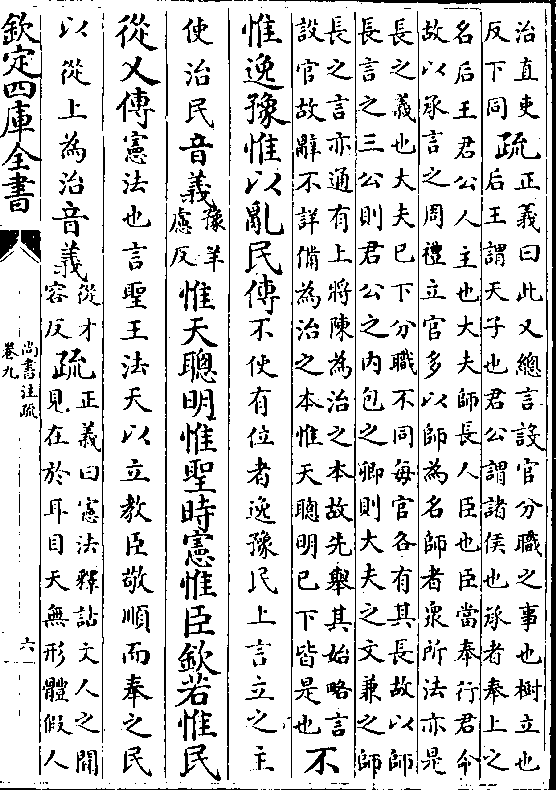 治直吏
反下同 疏 正義曰此又總言設官分職之事也樹立也
后王謂天子也君公謂諸侯也承者奉上之
名后王君公人主也大夫師長人臣也臣當奉行君命
故以承言之周禮立官多以師為名師者眾所法亦是
長之義也大夫已下分職不同每官各有其長故以師
長言之三公則君公之內包之卿則大夫之文兼之師
長之言亦通有上將陳為治之本故先舉其始略言
設官故辭不詳備為治之本惟天聰明已下皆是也 不
惟逸豫惟以亂民傳不使有位者逸豫民上言立之主
使治民音義豫羊
慮反惟天聰明惟聖時憲惟臣欽若惟民
從乂傳憲法也言聖王法天以立教臣敬順而奉之民
以從上為治音義從才
容反疏正義曰憲法釋詁文人之聞
見在於耳目天無形體假人
欽定四庫全書
尚書注疏
卷九
六